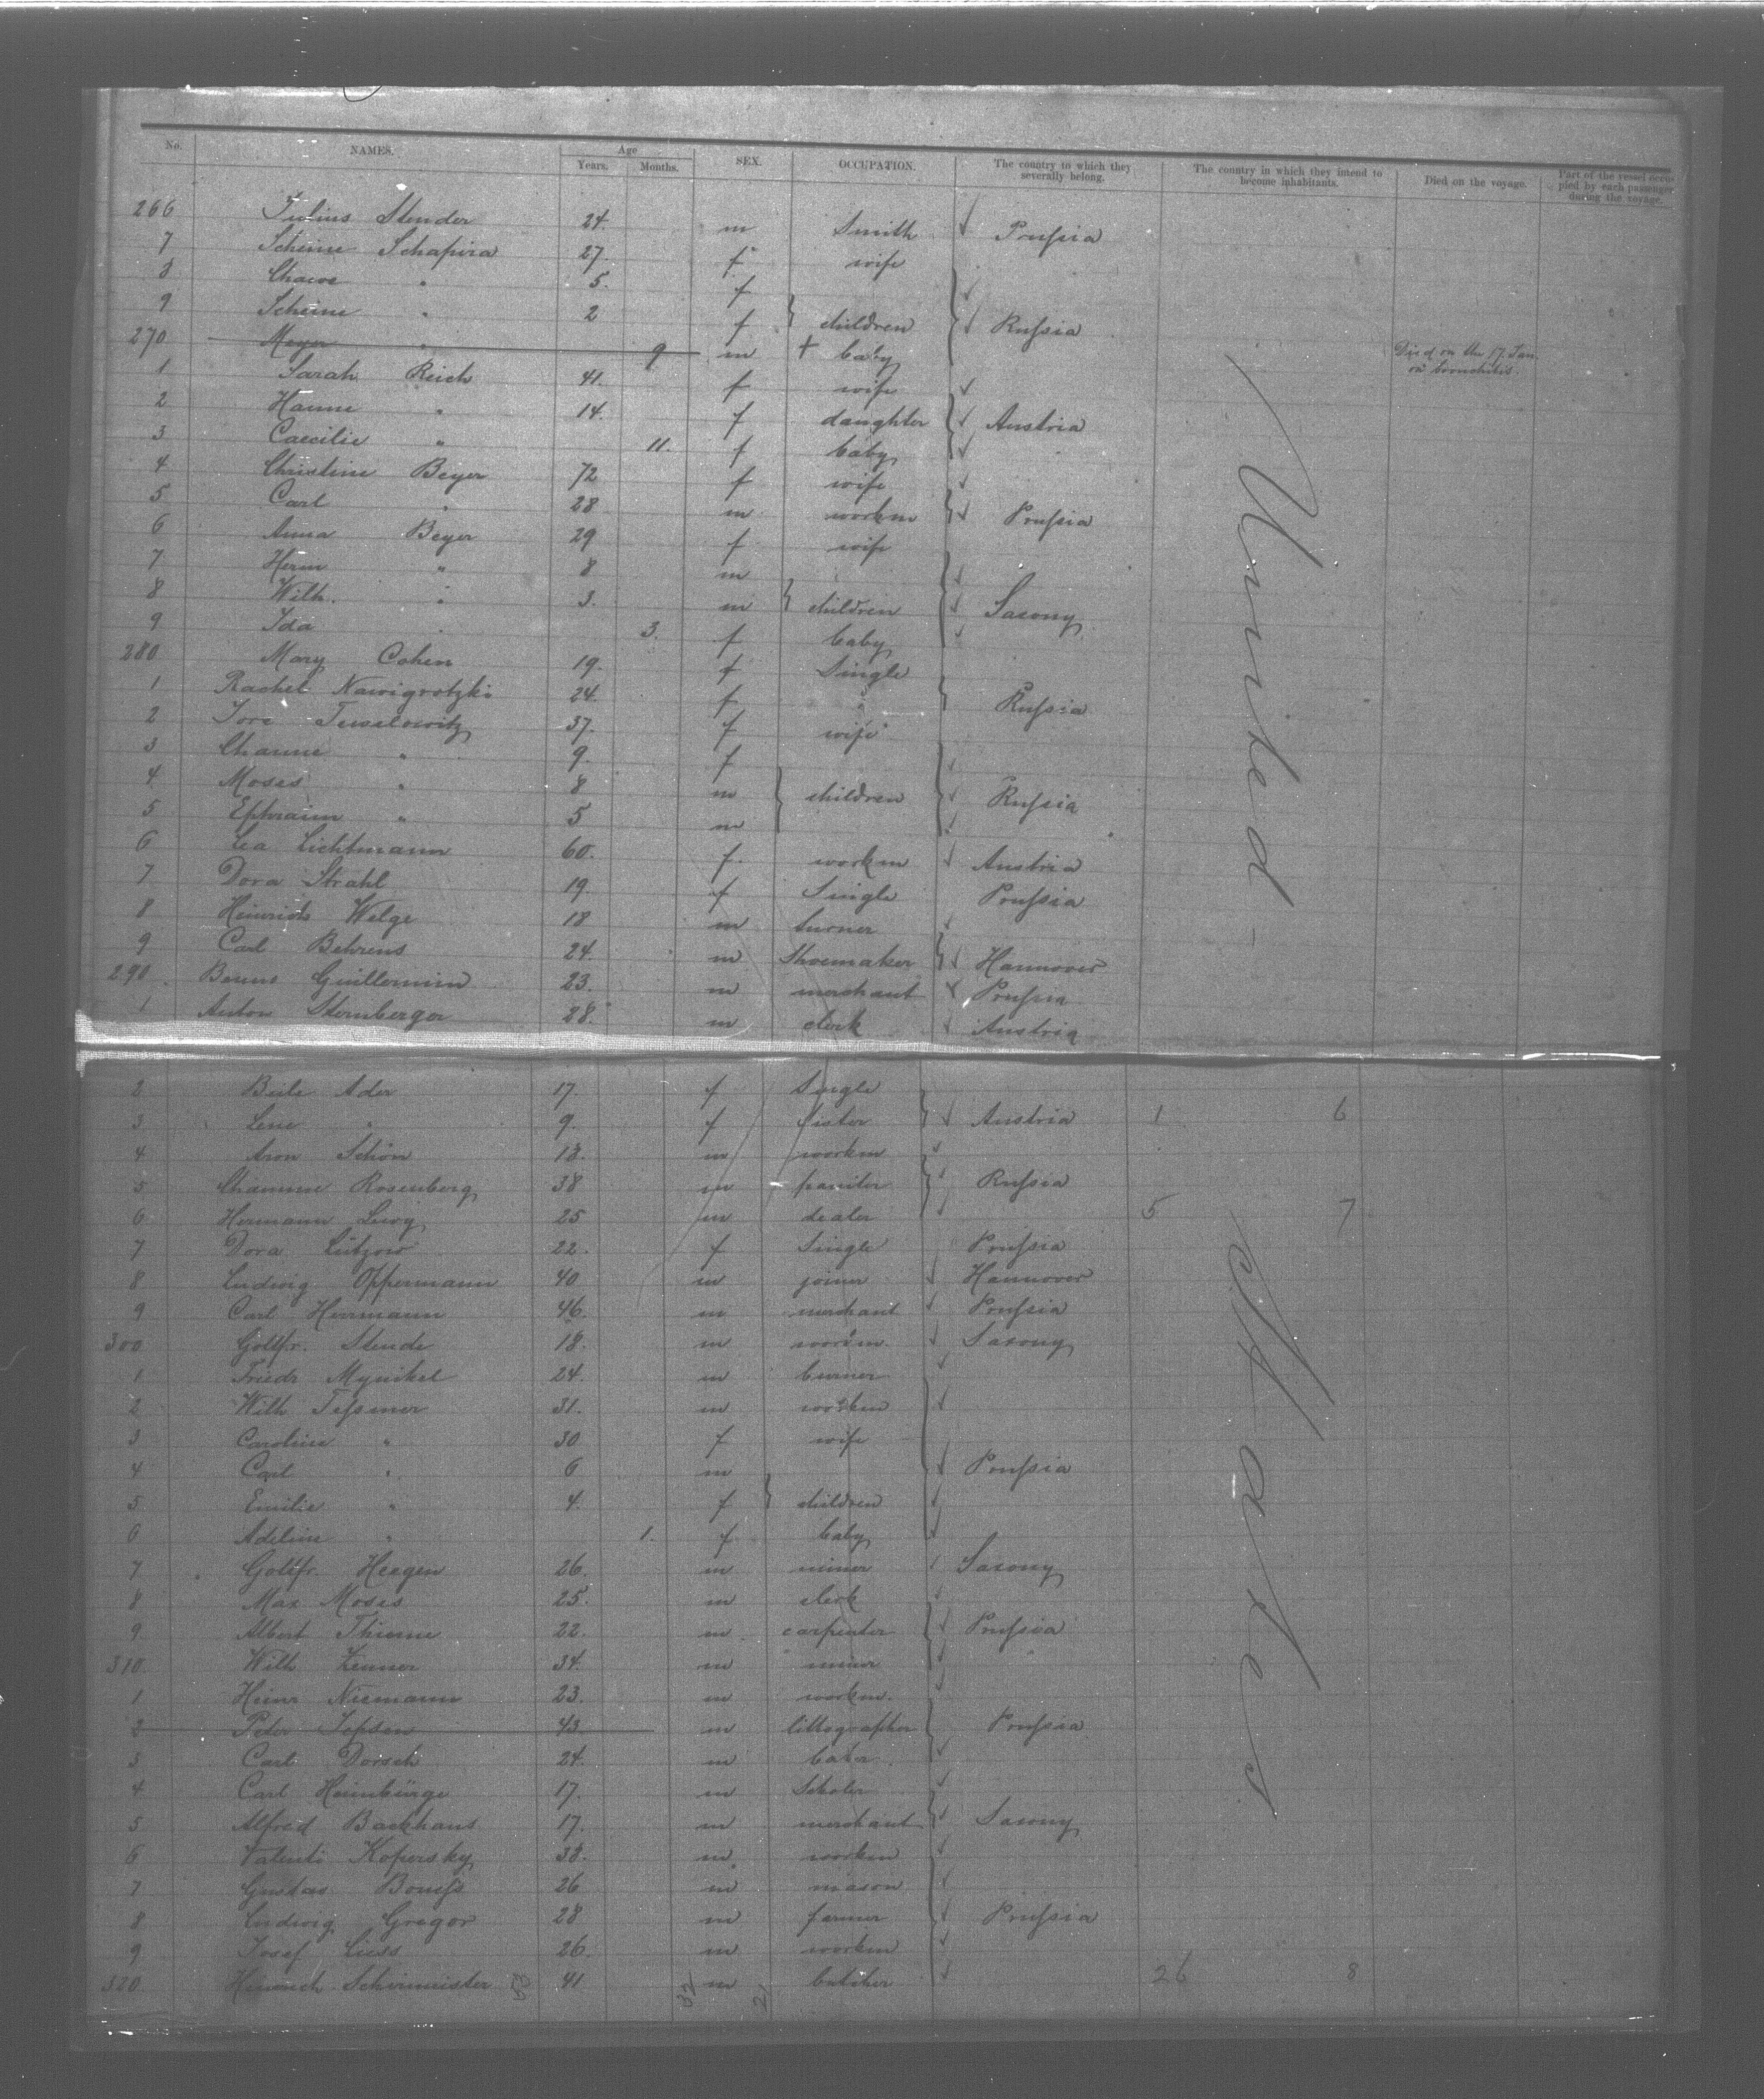 No. NAMES. Age Years. Months. SEX. OCCUPATION. The country to which they severally belong. The country in which they intend to become inhabitants. Died on the voyage. Part of the vessel occupied by each passenger during the voyage.
266 Julius Stender 24. m Smith Prussia
7 Scheine Schapira 27. f wife
8 Chawe " 5. f
9 Scheine " 2 f children Russia
270 Meyer " 9 m + baby Died on the 17. Jan. on bronchitis.
1 Sarah Reich 41. f wife
2 Hanne " 14. f daughter Austria
3 Caecilie " 11. f baby
4 Christine Beyer 72 f wife
5 Carl " 28 m workm Prussia
6 Anna Beyer 29 f wife
7 Herm " 8 m
8 Wilh. " 3. m children Saxony
9 Ida " 3. f baby
280 Mary Cohen 19. f Single
1 Rachel Nawigrotzki 24. f " Russia
2 37. f wife
3 Channe " 9. f
4 Moses " 8 m children Russia
5 Ephraim " 5 m
6 Lea Lichtmann 60. f. workm Austria
7 Dora Strahl 19. f Single Prussia
8 Heinrich Welge 18 m turner
9 Carl Behrens 24. m Shoemaker Hannover
290 Guillermin 23. m merchant Prussia
1 Anton Sternberger 28. m clerk Austria
United
2 Beile Ader 17. f Single
3 Lene " 9. f sister Austria 1 6
4 Aron Schön 18. m workm
5 Chamme Rosenberg 38 m painter Russia
6 Hermann Levy 25 m dealer 5 7
7 Dora Lützow 22. f Single Prussia
8 Ludwig Oppermann 40 m joiner Hannover
9 Carl Herrmann 46. m merchant Prussia
300 Gottfr. Stende 18. m workm. Saxony
1 Friedr Mynikel 24. m turner
2 Wilh Tessmer 31. m workm
3 Caroline " 30 f wife
4 Carl " 6 m Prussia
5 Emilie " 4. f children
6 Adeline " 1. f baby
7 Gottfr. Heegen 26. m miner Saxony
8 Max Moses 25. m clerk
9 Albert Thieme 22. m carpenter Prussia
310. Wilh 34. m miner
1 Heinr Niemann 23. m workm.
2 Peter Jepsen 43 m lithographer Prussia
3 Carl Dorsch 24. m baker
4 Carl Heimbürge 17. m Scholar
5 Alfred Backhaus 17. m merchant Saxony
6 Valenti Kopersky 33. m workm
7 Gustav 26 m mason
8 Ludwig Gregor 28 m farmer Prussia
9 Josef Liess 26. m workm
320. Heinrich Schirmeister 41 m butcher 26 8
States